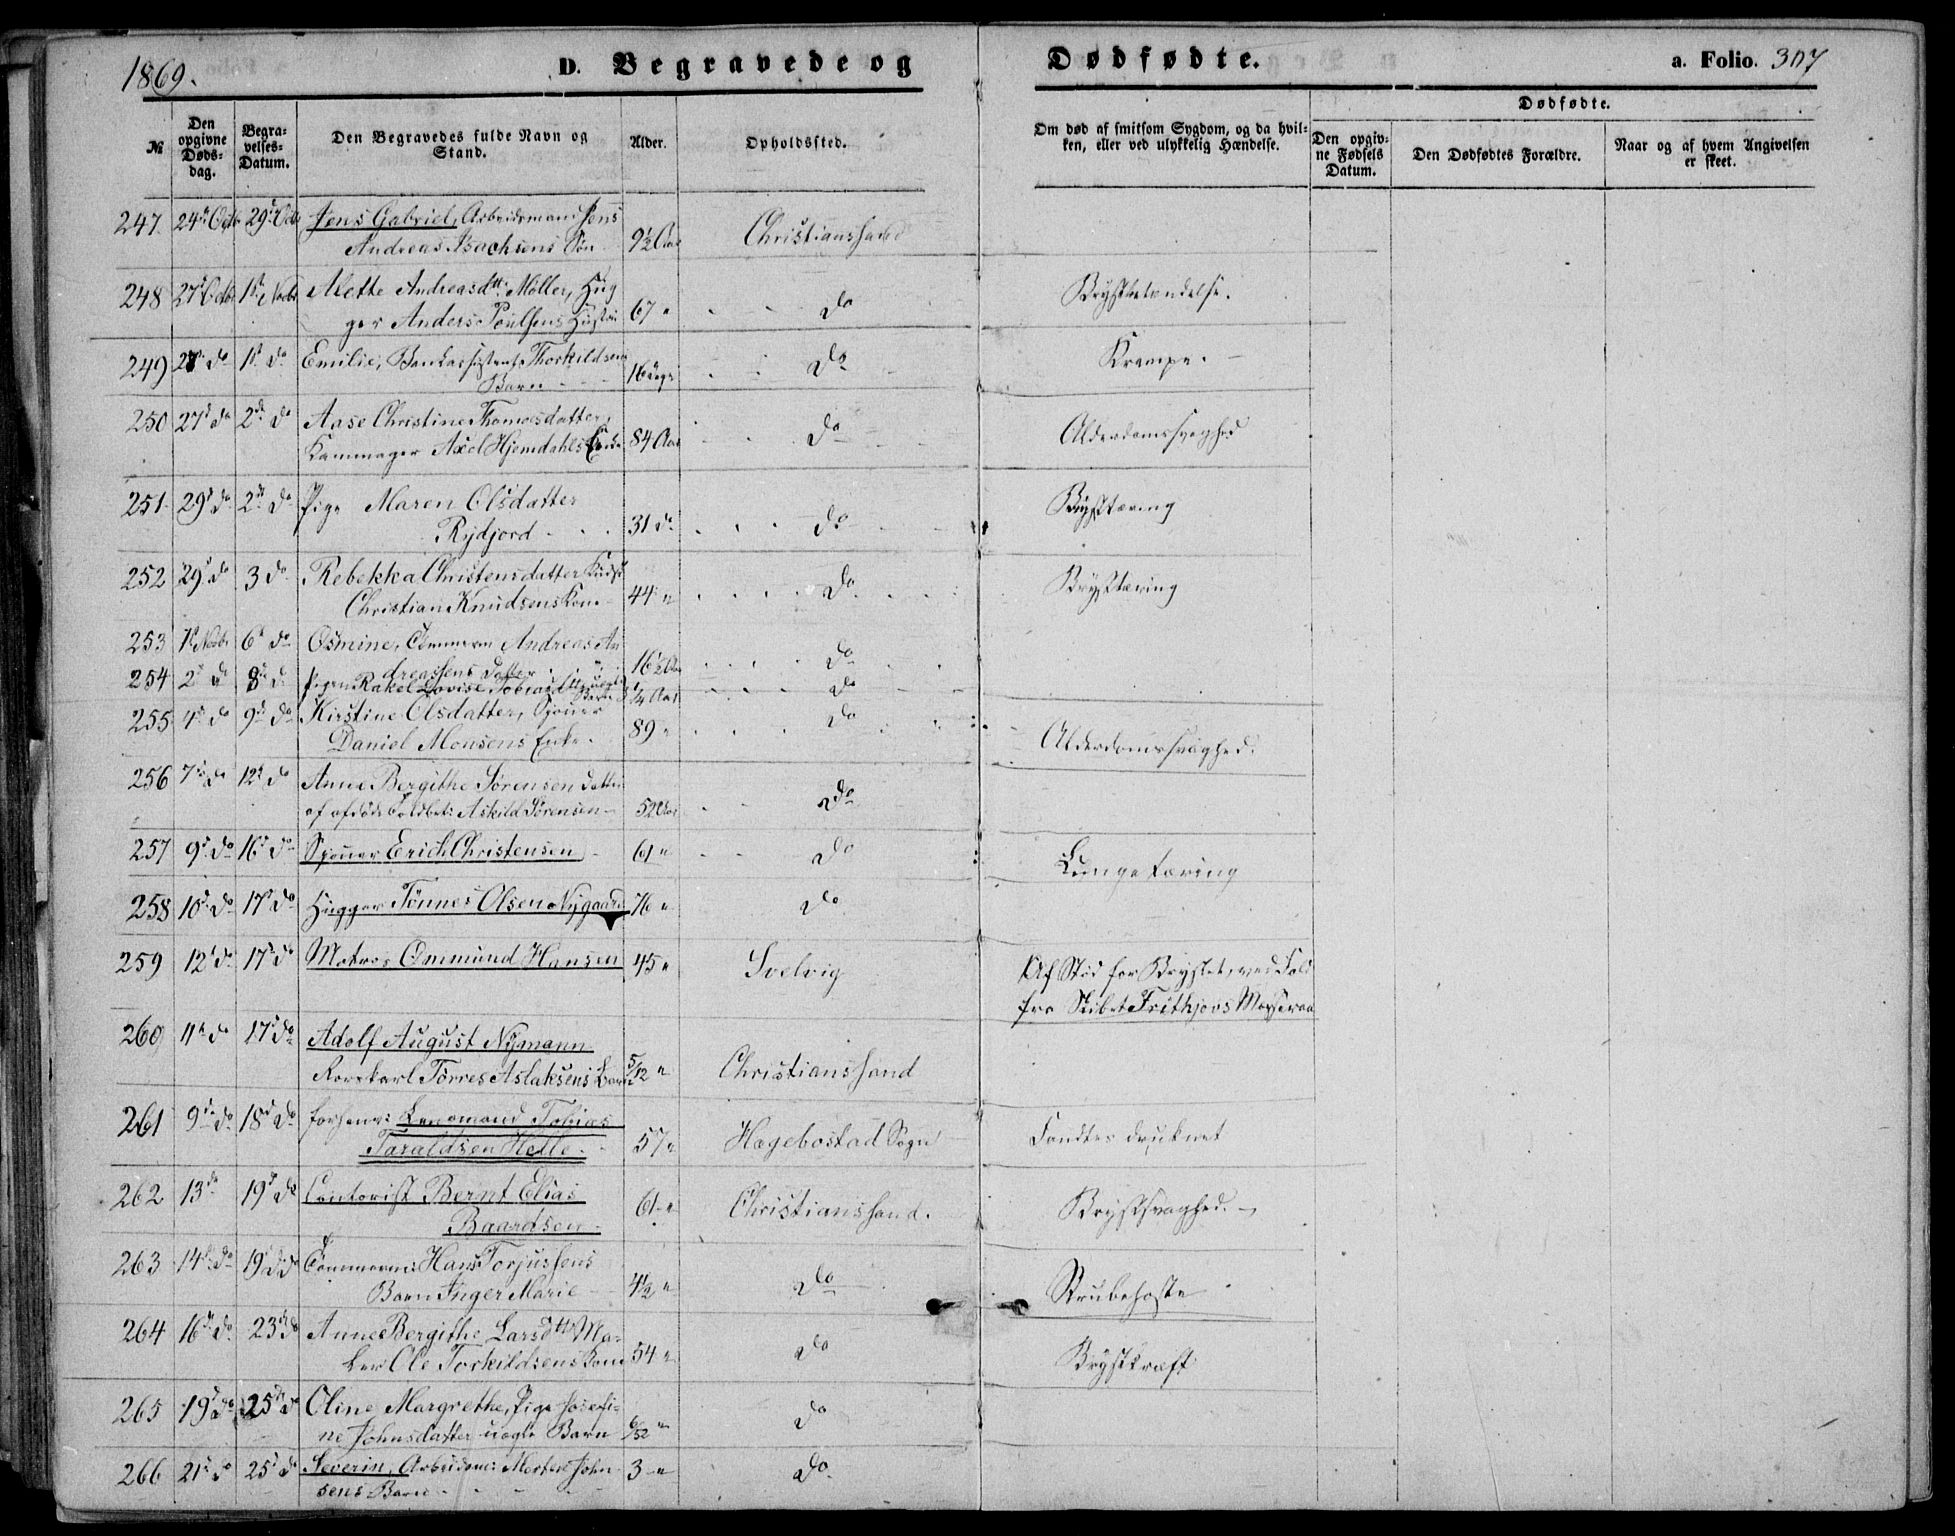 1869.
D. Begravede og Dødfødte. a. Folio. 307
№
Den opgivne Døds-dag.
Begra-velses-Datum.
Den Begravedes fulde Navn og Stand.
Alder.
Opholdssted.
Om død af smitsom Sygdom, og da hvil-ken, eller ved ulykkelig Hændelse.
Dødfødte.
Den opgiv-ne Fødsels Datum.
Den Dødfødtes Forældre.
Naar og af hvem Angivelsen er skeet.
247 24de Octb 29de Octb Jens Gabriel, Arbeidsmand Jens
Andreas Isachsens Søn 9½ Aar Christianssand
248 27de Octb 1ste Novbr Mette Andreasdtt: Møller, Hug
ger Anders Poulsens Hustru 67 " do Brystbetændelse.
249 do 1st do Emilie, Thorkildsens
Barn 16 Uger do Krampe.
250 27de do 2den do Aase Christine Thomasdatter,
Kammager Axel Hjemdahls Enke 84 Aar do Alderdomssvaghed
251 29de do 2den do Pige Maren Olsdatter
Rydjord 31 do do Brysttæring
252 29de do 3 do Rebekka Christensdatter
Christian Knudsens Kone 44 " do Brysttæring
253 1st Novbr 6te do Osmine, Tømmerm Andreas An
dreassens Datter 16½ Aar do
254 2den do 8de do Pigen Rakel Lovise Tobiasdtt uægte
Barn ¼ Aar do
255 4de do 9de do Kirstine Olsdatter, Sjouer
Daniel Monsens Enke. 89 " do Alderdomssvaghed.
256 7de do 12te do Anne Bergithe Sørensen Datter
af afdøde Toldbet: Askild Sørensen 52 Aar do
257 9de do 16de do Sjouer Erich Christensen 61 " do Lungetæring
258 10de do 17de do Hugger Tønnes Olsen Nygaard 76 " do
259 12te do 17de do Matros Ommund Hansen 45 " Svelvig Af Stød for Brystet, ved Fald
fra Skibet Frithjovs Merseraa
260 11te do 17de do Adolf August Nymann
Rorskarl Tørres Aslaksens Barn 5/12 " Christianssand
261 9de do 18de do forhenv: Lensmand Tobias
Taraldsen Helle. 57 " Hægebostad Sogn Fundtes druknet
262 13de 19de do Contorist Bernt Elias
Baardsen 61 " Christianssand. Brystsvaghed.
263 14de do 19de do Tømmerm: Hans Torjussens
Barn Inger Marie 4½ " do Strubehoste
264 16de do 23de do Anne Bergithe Larsdtt Ma-
ler Ole Torkildsens Kone 54 " do Brystkræft
265 19de do 25de do Oline Margrethe, Pige Josefi-
ne Johnsdatter uægte Barn 6/52 " do
266 21de do 25de do Severin, Arbeidsm: Morten John
sens Barn 3 " do.